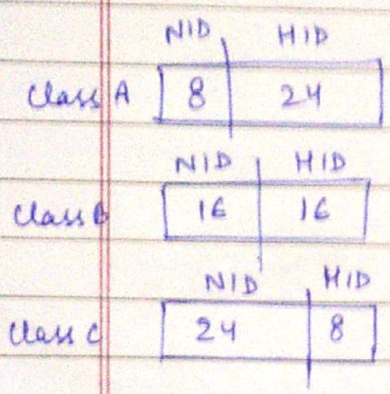 NID HID
Class A 8 24
NID HID
Class B 16 16
NID HID
Class C 24 8